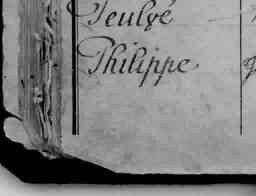 Teulé
Philippe